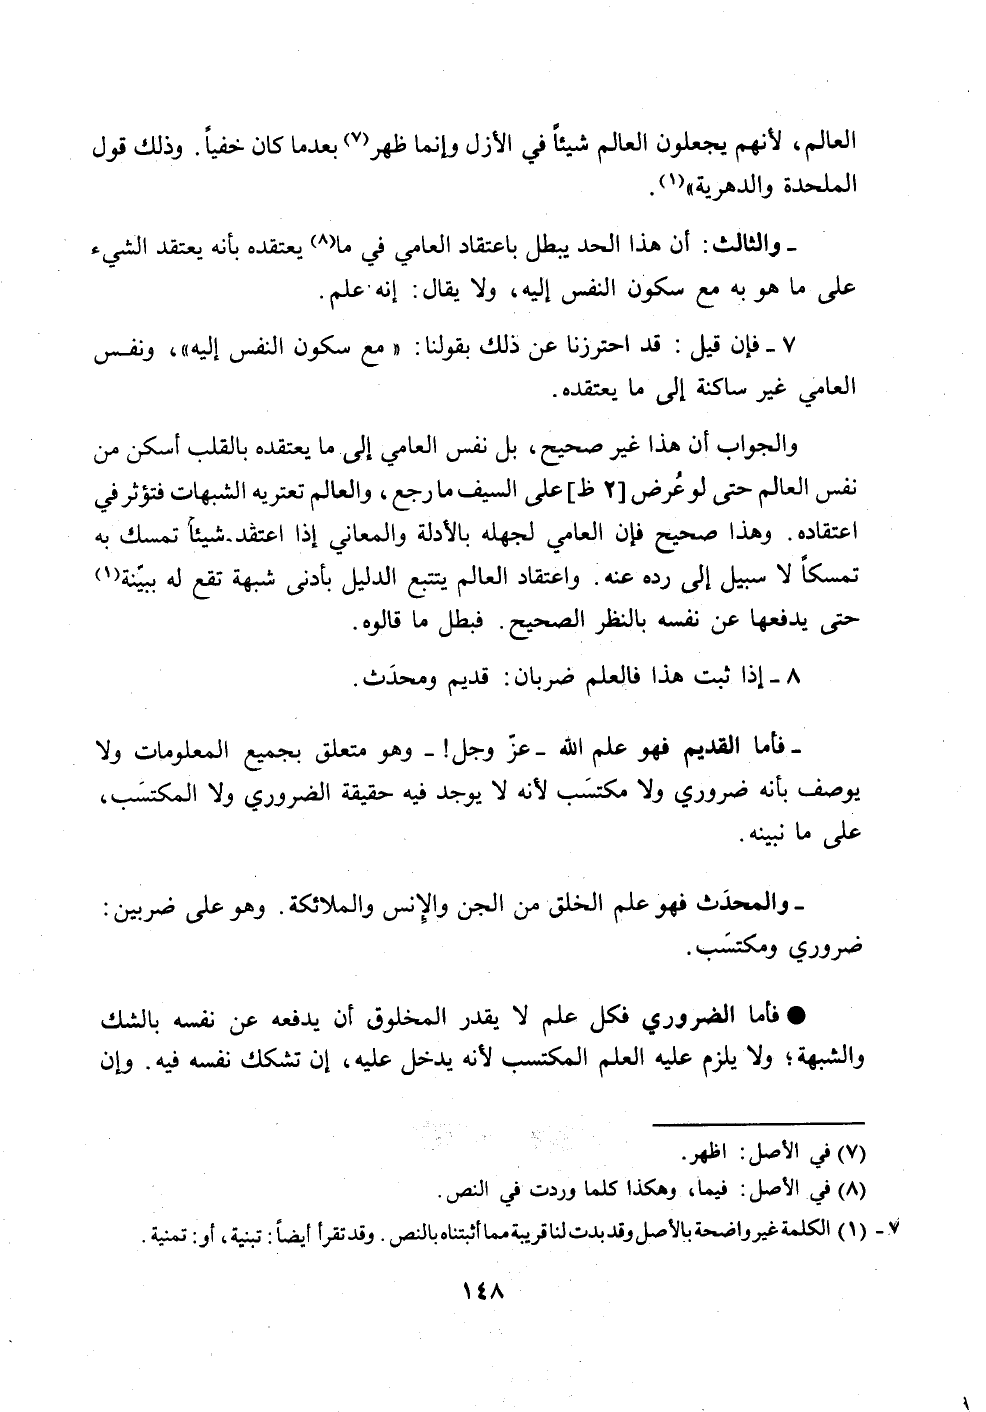 العالم، لأنهم يجعلون العالم شيئاً في الأزل وإنما ظهر(٧) بعدما كان خفياً. وذلك قول
الملحدة والدهرية»(١).
ـ والثالث: أن هذا الحد يبطل باعتقاد العامي في ما(٨) يعتقده بأنه يعتقد الشيء
على ما هو به مع سكون النفس إليه، ولا يقال: إنه علم.
٧ ـ فإن قيل: قد احترزنا عن ذلك بقولنا: «مع سكون النفس إليه»، ونفس
العامي غير ساكنة إلى ما يعتقده.
والجواب أن هذا غير صحيح، بل نفس العامي إلى ما يعتقده بالقلب أسكن من
نفس العالم حتى لو عُرض [٢ ظ] على السيف ما رجع، والعالم تعتريه الشبهات فتؤثر في
اعتقاده. وهذا صحيح فإن العامي لجهله بالأدلة والمعاني إذا اعتقد شيئاً تمسك به
تمسكاً لا سبيل إلى رده عنه. واعتقاد العالم يتتبع الدليل بأدنى شبهة تقع له ببيّنة(١)
حتى يدفعها عن نفسه بالنظر الصحيح. فبطل ما قالوه.
٨ ـ إذا ثبت هذا فالعلم ضربان: قديم ومحدَث.
ـ فأما القديم فهو علم الله ـ عزّ وجل! ـ وهو متعلق بجميع المعلومات ولا
يوصف بأنه ضروري ولا مكتسَب لأنه لا يوجد فيه حقيقة الضروري ولا المكتسَب،
على ما نبينه.
ـ والمحدَث فهو علم الخلق من الجن والإنس والملائكة. وهو على ضربين:
ضروري ومكتسَب.
● فأما الضروري فكل علم لا يقدر المخلوق أن يدفعه عن نفسه بالشك
والشبهة؛ ولا يلزم عليه العلم المكتسب لأنه يدخل عليه، إن تشكك نفسه فيه. وإن
(٧) في الأصل: اظهر.
(٨) في الأصل: فيما، وهكذا كلما وردت في النص.
٧ ـ (١) الكلمة غير واضحة بالأصل وقد بدت لنا قريبة مما أثبتناه بالنص. وقد تقرأ أيضاً: تبنية، أو: تمنية.
١٤٨